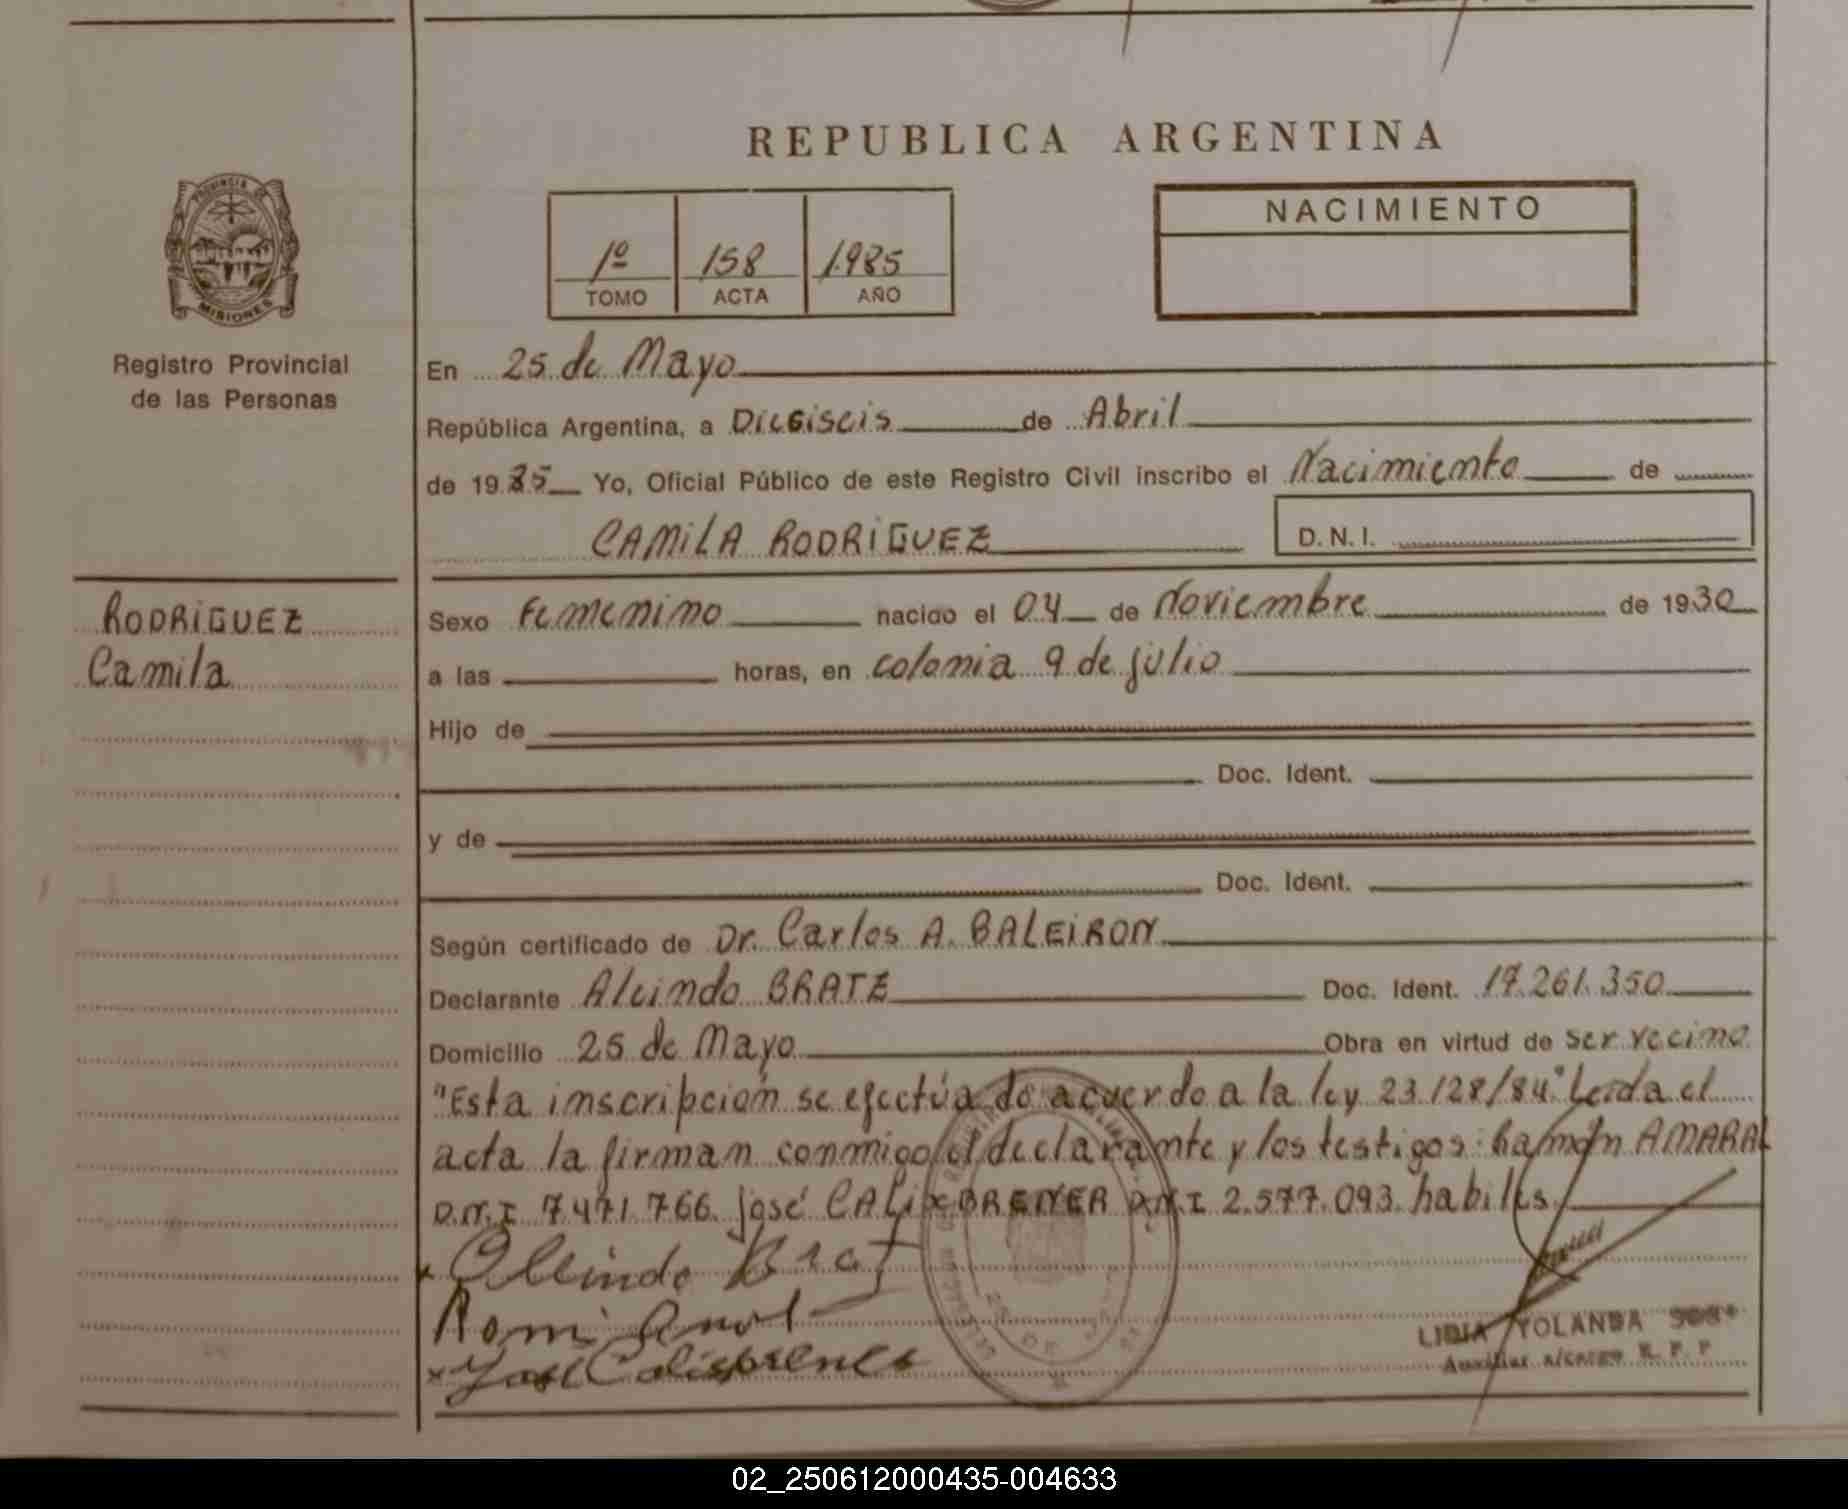 REPUBLICA ARGENTINA
PROVINCIA DE
MISIONES
Registro Provincial
de las Personas
1º 158 1.985
TOMO ACTA AÑO
NACIMIENTO
En 25 de Mayo
República Argentina, a Dieciseis de Abril
de 1985 Yo, Oficial Público de este Registro Civil inscribo el Nacimiento de
CAMILA RODRIGUEZ D.N.I.
RODRIGUEZ
Camila
Sexo Femenino nacido el 04 de Noviembre de 1930
a las horas, en colonia 9 de julio
Hijo de
Doc. Ident.
y de
Doc. Ident.
Según certificado de Dr. Carlos A. BALEIRON
Declarante Alcindo BRATZ Doc. Ident. 17.261.350
Domicilio 25 de Mayo Obra en virtud de ser vecino
"Esta inscripción se efectúa de acuerdo a la ley 23.128/84" Leida el
acta la firman conmigo el declarante y los testigos: Ramón AMARAL
D.N.I 7.471.766. José CALIXBRENER D.N.I 2.577.093. habiles.
LIDIA YOLANDA
Auxiliar a/cargo R. P. P
02_250612000435-004633